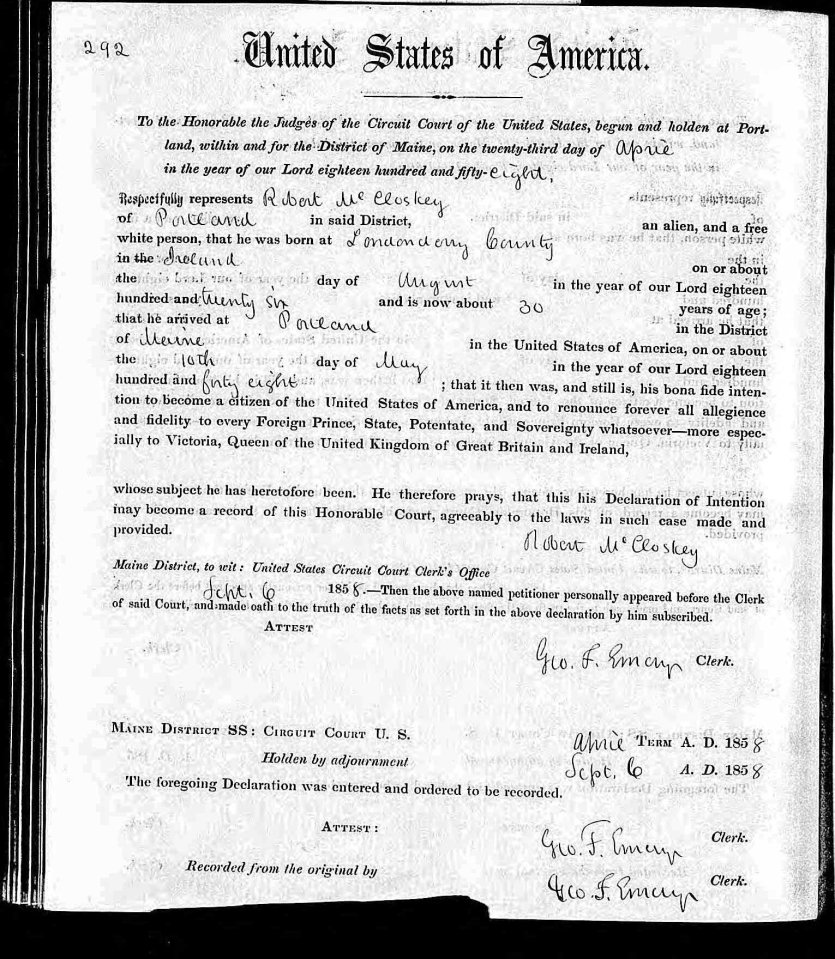 292
United States of America.
To the Honorable the Judges of the Circuit Court of the United States, begun and holden at Port-
land, within and for the District of Maine, on the twenty-third day of April
in the year of our Lord eighteen hundred and fifty-eight,
Respectfully represents Robert McCloskey
of Portland in said District, an alien, and a free
white person, that he was born at Londonderry County
in the Ireland on or about
the day of August in the year of our Lord eighteen
hundred and twenty six and is now about 30 years of age;
that he arrived at Portland in the District
of Maine in the United States of America, on or about
the 10th day of May in the year of our Lord eighteen
hundred and forty eight ; that it then was, and still is, his bona fide inten-
tion to become a citizen of the United States of America, and to renounce forever all allegience
and fidelity to every Foreign Prince, State, Potentate, and Sovereignty whatsoever—more espec-
ially to Victoria, Queen of the United Kingdom of Great Britain and Ireland,
whose subject he has heretofore been. He therefore prays, that this his Declaration of Intention
may become a record of this Honorable Court, agreeably to the laws in such case made and
provided.
Robert McCloskey
Maine District, to wit: United States Circuit Court Clerk's Office
Sept. 6 1858.—Then the above named petitioner personally appeared before the Clerk
of said Court, and made oath to the truth of the facts as set forth in the above declaration by him subscribed.
Attest
Geo. F. Emery Clerk.
Maine District SS: Circuit Court U. S.
April Term A. D. 1858
Holden by adjournment Sept. 6 A. D. 1858
The foregoing Declaration was entered and ordered to be recorded.
Attest:
Geo. F. Emery Clerk.
Recorded from the original by
Geo. F. Emery Clerk.